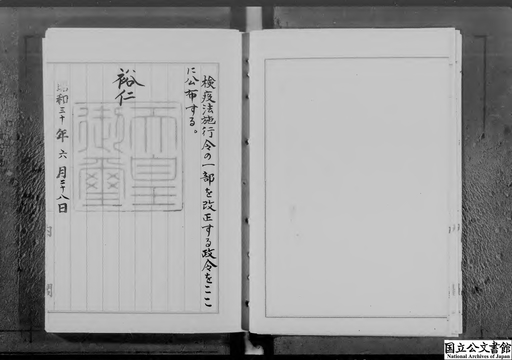 検疫法施行令の一部を改正する政令をここ
に公布する。
裕仁
天皇
御璽
昭和三十年六月二十八日
内閣
国立公文書館
National Archives of Japan